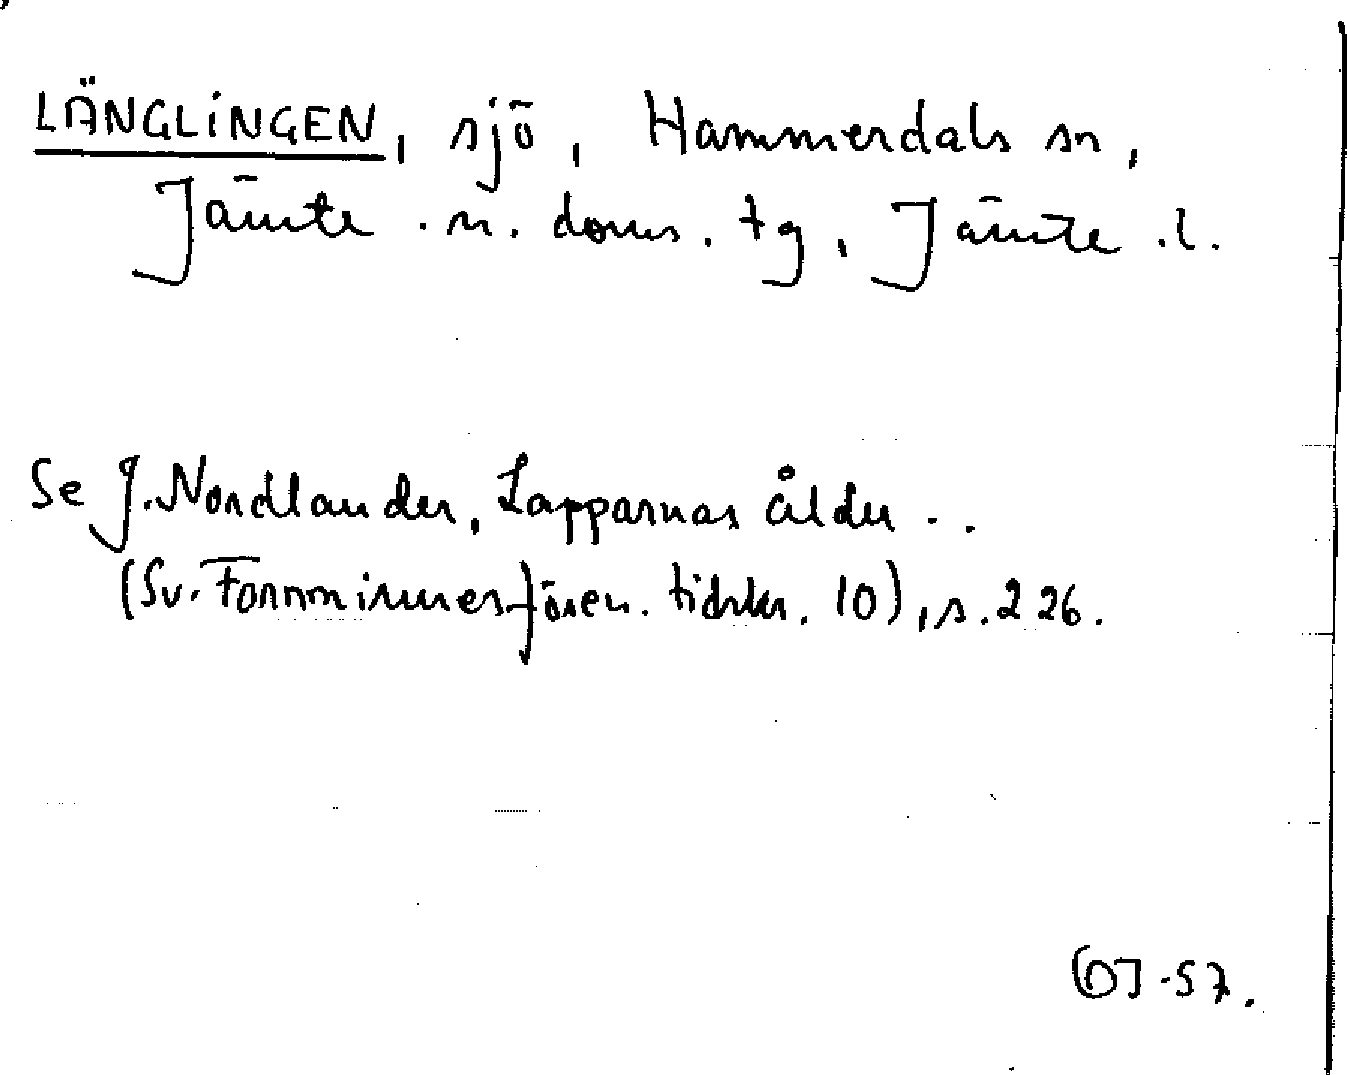 LÄNGLINGEN, sjö, Hammerdals sn,
Jämte. n. doms. tg, Jämte. l.
Se J. Nordlander, Lapparnas ålder . .
(Sv. Fornminnesfören. tidskr. 10), s. 226.
57.